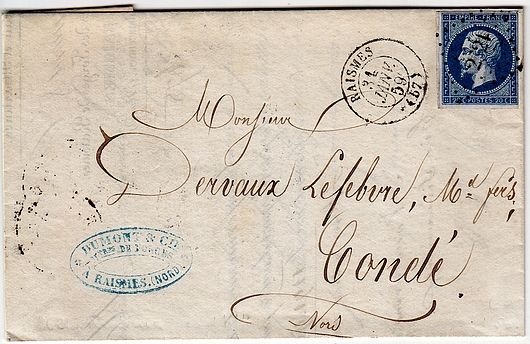 EMPIRE FRANC
20 C POSTES 20 C
RAISMES
31
JANV.
59
(57)
Monsieur
Dervaux Lefebvre, Md fers,
Condé
Nord
DUMONT & CIE
A RAISMES.(NORD)